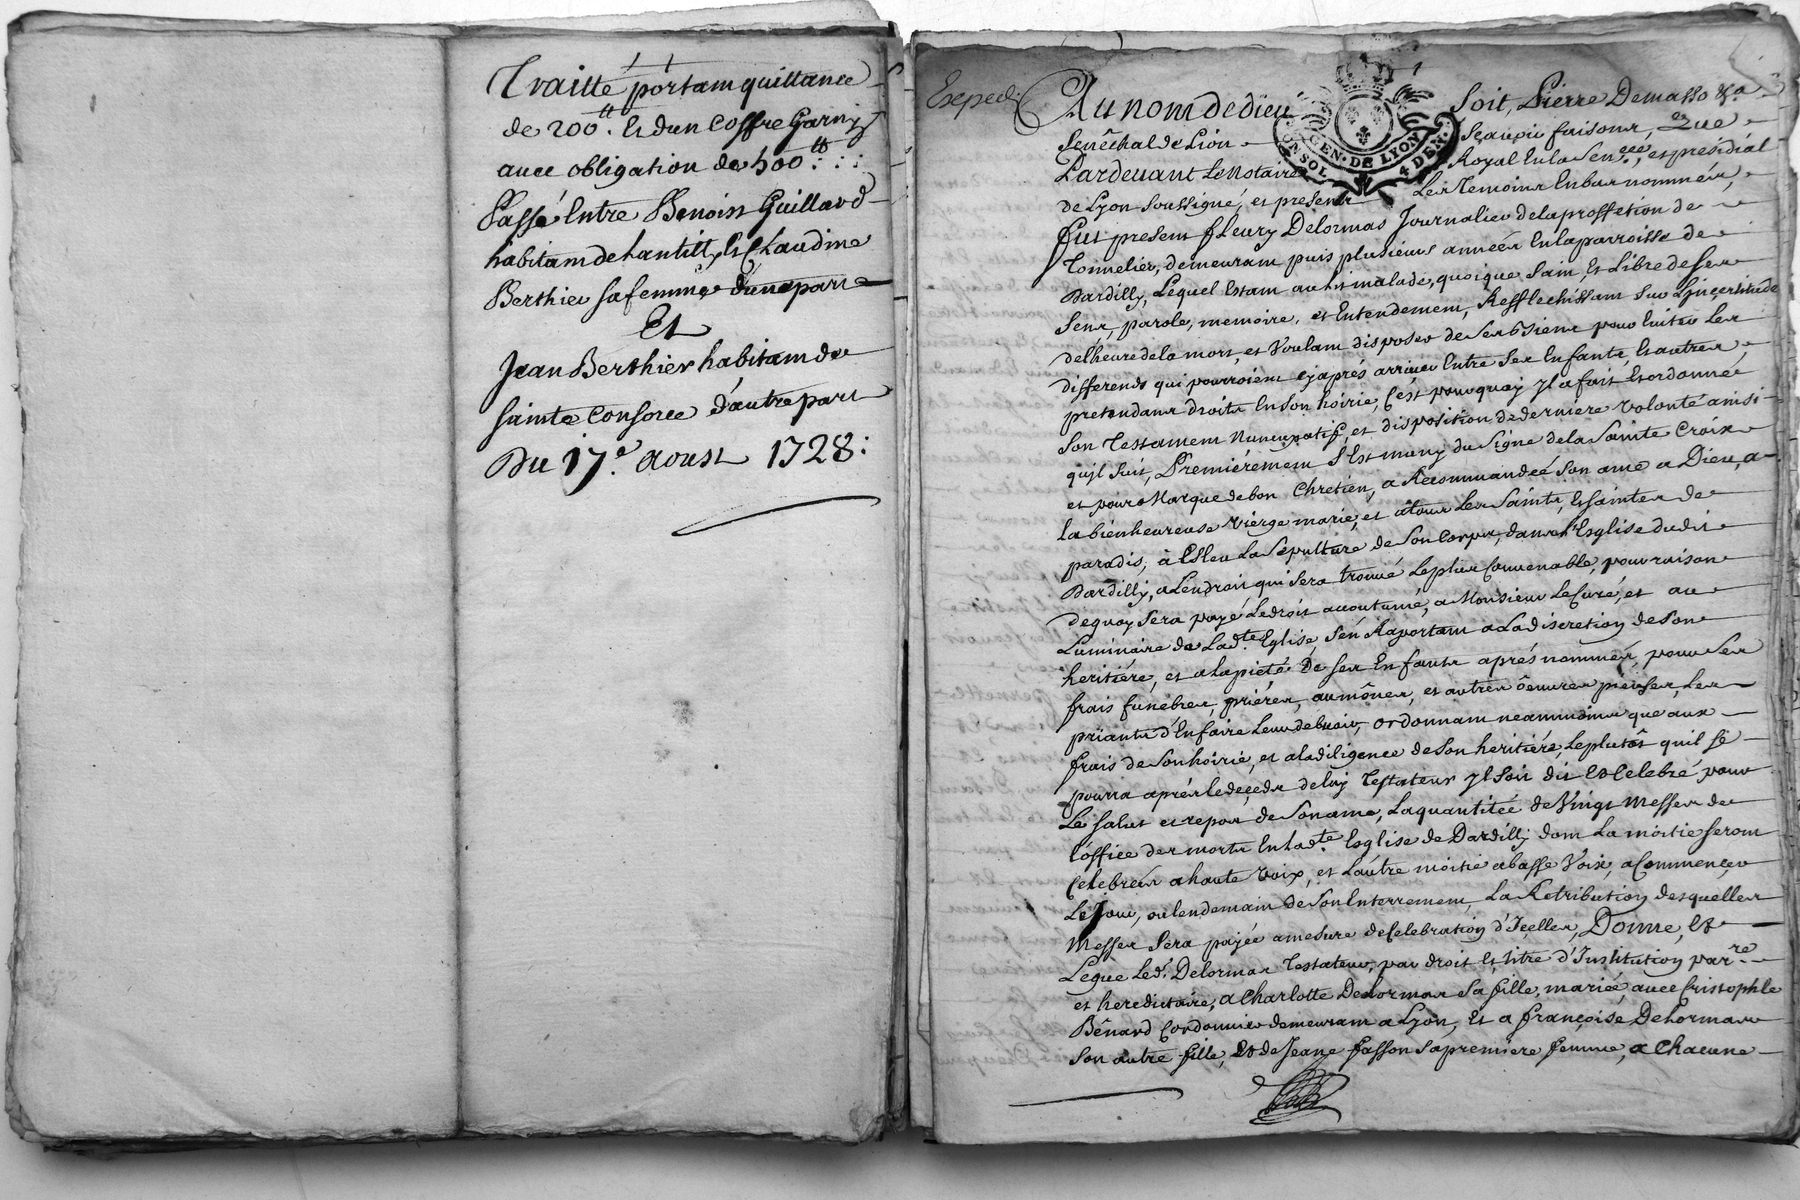 Traitté portant quittance
de 200 ₶. Et d'un Coffre Garny
avec obligation de 500 ₶ : : :
Passé Entre Benoist Guillard
habitant de hantilly, Et Claudine
Berthier sa femme d'une part
Et
Jean Berthier habitant de
sainte Consorce d'autre part
Du 17.e Aoust 1728 :
Exped.
Au nom de dieu Soit, Pierre Demasso &a
Senêchal de Lion Sçavoir faisons, Que
Pardevant Le Nottaire Royal En la Sen.cée, et presidial
de Lyon soussigné, et presents Les Temoins En bas nommés,
fut present fleury Delormas Journalier de la proffetion de
Tonnelier, demeurant puis plusieurs années En la parroisse de
Dardilly, Lequel Estant au lit malade, quoique Sain, Et Libre de ses
Sens, parole, memoire, et Entendement, Reffléchissant Sur L'inçertitude
de l'heure de la mort, et Voulant disposer de ses biens pour Eviter Les
differends qui pourroient cy aprés arriver Entre Ses Enfants, Et autres
pretendants droits En son hoirie, C'est pourquoy yl a fait Et ordonné
Son Testament Nuncupatif, et disposition de derniere volonté ainsi
qu'yl Suit, Premiérement S'est muny du Signe de la Sainte Croix
et pour Marque de bon Chretien, a Recommandée son ame a Dieu, a
la bienheureuse vierge marie, et a tous Les Saints, Et saintes de
paradis, à Esleu La Sepulture de son Corps, dans l'Esglise dudit
Dardilly, a L'endroit qui sera trouvé Le plus Convenable, pour raison
dequoy Sera payé Le droit accoutumé, a Monsieur Le Curé, et au
Luminaire de Lad.te Eglise, S'en Raportant a La discretion de son
heritiére, et a la pieté de ses Enfants aprés nommés, pour Ses
frais funébres, priéres, aumônes, et autres oeuvres pieuses, Les
priants d'En faire Leur debvoir, ordonnant neammoins que aux
frais de Son hoirie, et a la diligence de Son heritiére, Le plutôt qu'il se
pourra aprés le deçeds de luy Testateur yl soit dit Et Celebré pour
Le salut et repos de Son ame, La quantitée de Vingt Messes de
l'office des morts En lad.te Esglise de Dardilly dont La moitié seront
Celebrées a haute voix, et L'autre moitié a basse Voix, a Commençer
Le Jour, ou lendemain de Son Enterrement, La Retribution desquelles
Messes Sera payée a mesure de Celebration d'Içelles, Donne, Et
Legue Led. Delormas Testateur, par droit Et titre d'Institution par.re
et hereditaire, a Charlotte Delormas Sa fille, mariée avec Cristophle
Bénard Cordonnier demeurant a Lyon, Et a françoise Delormas
Son autre fille, Et de Jeane fasson sa premiere femme, a Chacune
GEN. DE LYON
4 DEN.